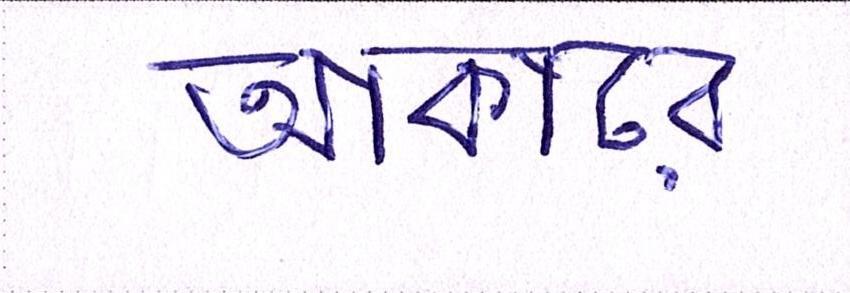 আকারে